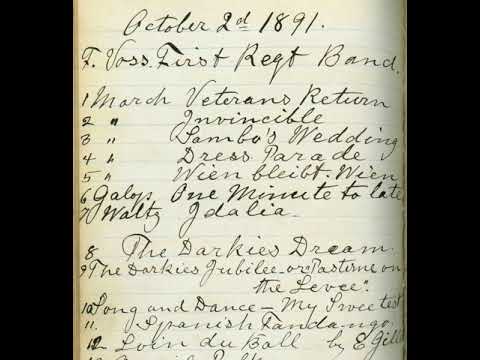 October 2d 1891.
F. Voss. First Regt Band.
1 March Veterans Return
2 " Invincible
3 " Sambo's Wedding
4 " Dress Parade
5 " Wien bleibt. Wien
6 Galop One Minute to late
7 Waltz Idalia.
8 The Darkies Dream.
9 The Darkies Jubilee or Pastime on
the Levee.
10 Song and Dance – My Sweetest
11. Spanish Fandango
12 – Loin du Ball by E Gillet